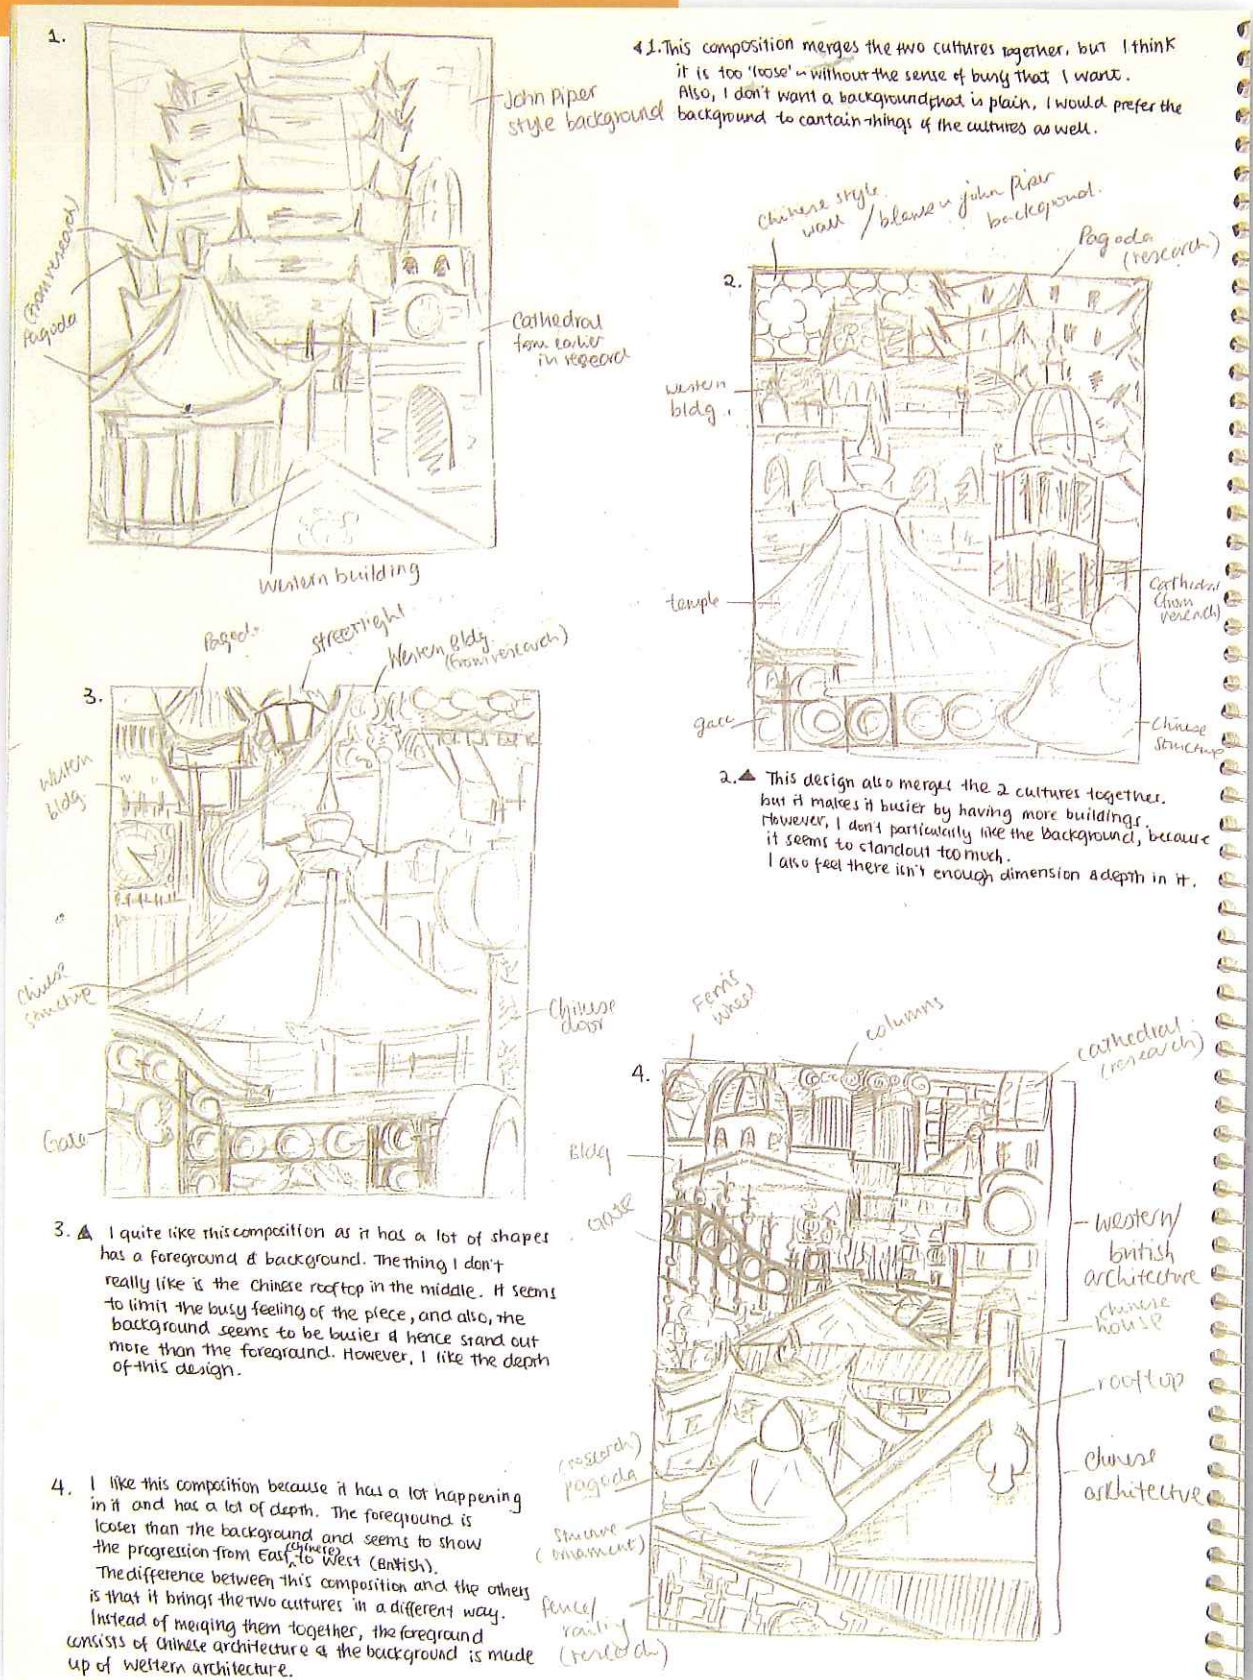 1.
John Piper
style background
(from research)
Pagoda
Cathedral
from earlier
in research
Western building
◂1. This composition merges the two cultures together, but I think
it is too 'loose' ~ without the sense of busy that I want.
Also, I don't want a background that is plain, I would prefer the
background to contain things of the cultures as well.
2.
Chinese style
wall
/ blank in john Piper
background.
Pagoda
(research)
western
bldg.
temple
gate
Cathedral
(from
research)
Chinese
structure
2.▲ This design also merges the 2 cultures together.
but it makes it busier by having more buildings.
However, I don't particularly like the background, because
it seems to standout too much.
I also feel there isn't enough dimension & depth in it.
3.
Pagoda
streetlight
Western Bldg.
(from research)
Western
bldg.
Chinese
structure
Chinese
door
Gate
3. ▲ I quite like this composition as it has a lot of shapes
has a foreground & background. The thing I don't
really like is the chinese rooftop in the middle. It seems
to limit the busy feeling of the piece, and also, the
background seems to be busier & hence stand out
more than the foreground. However, I like the depth
of this design.
4.
Ferris
wheel
columns
cathedral
(research)
Bldg
Gate
western/
british
architecture
chinese
house
rooftop
chinese
architecture
(research)
pagoda
structure
(ornament)
fence/
railing
(research)
4. I like this composition because it has a lot happening
in it and has a lot of depth. The foreground is
looser than the background and seems to show
the progression from East (chinese) to West (British).
The difference between this composition and the others
is that it brings the two cultures in a different way.
Instead of merging them together, the foreground
consists of chinese architecture & the background is made
up of western architecture.